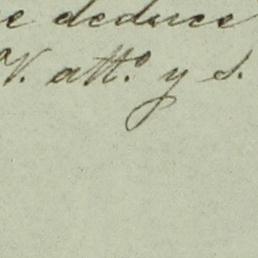 e deduce
V. att.º y s.